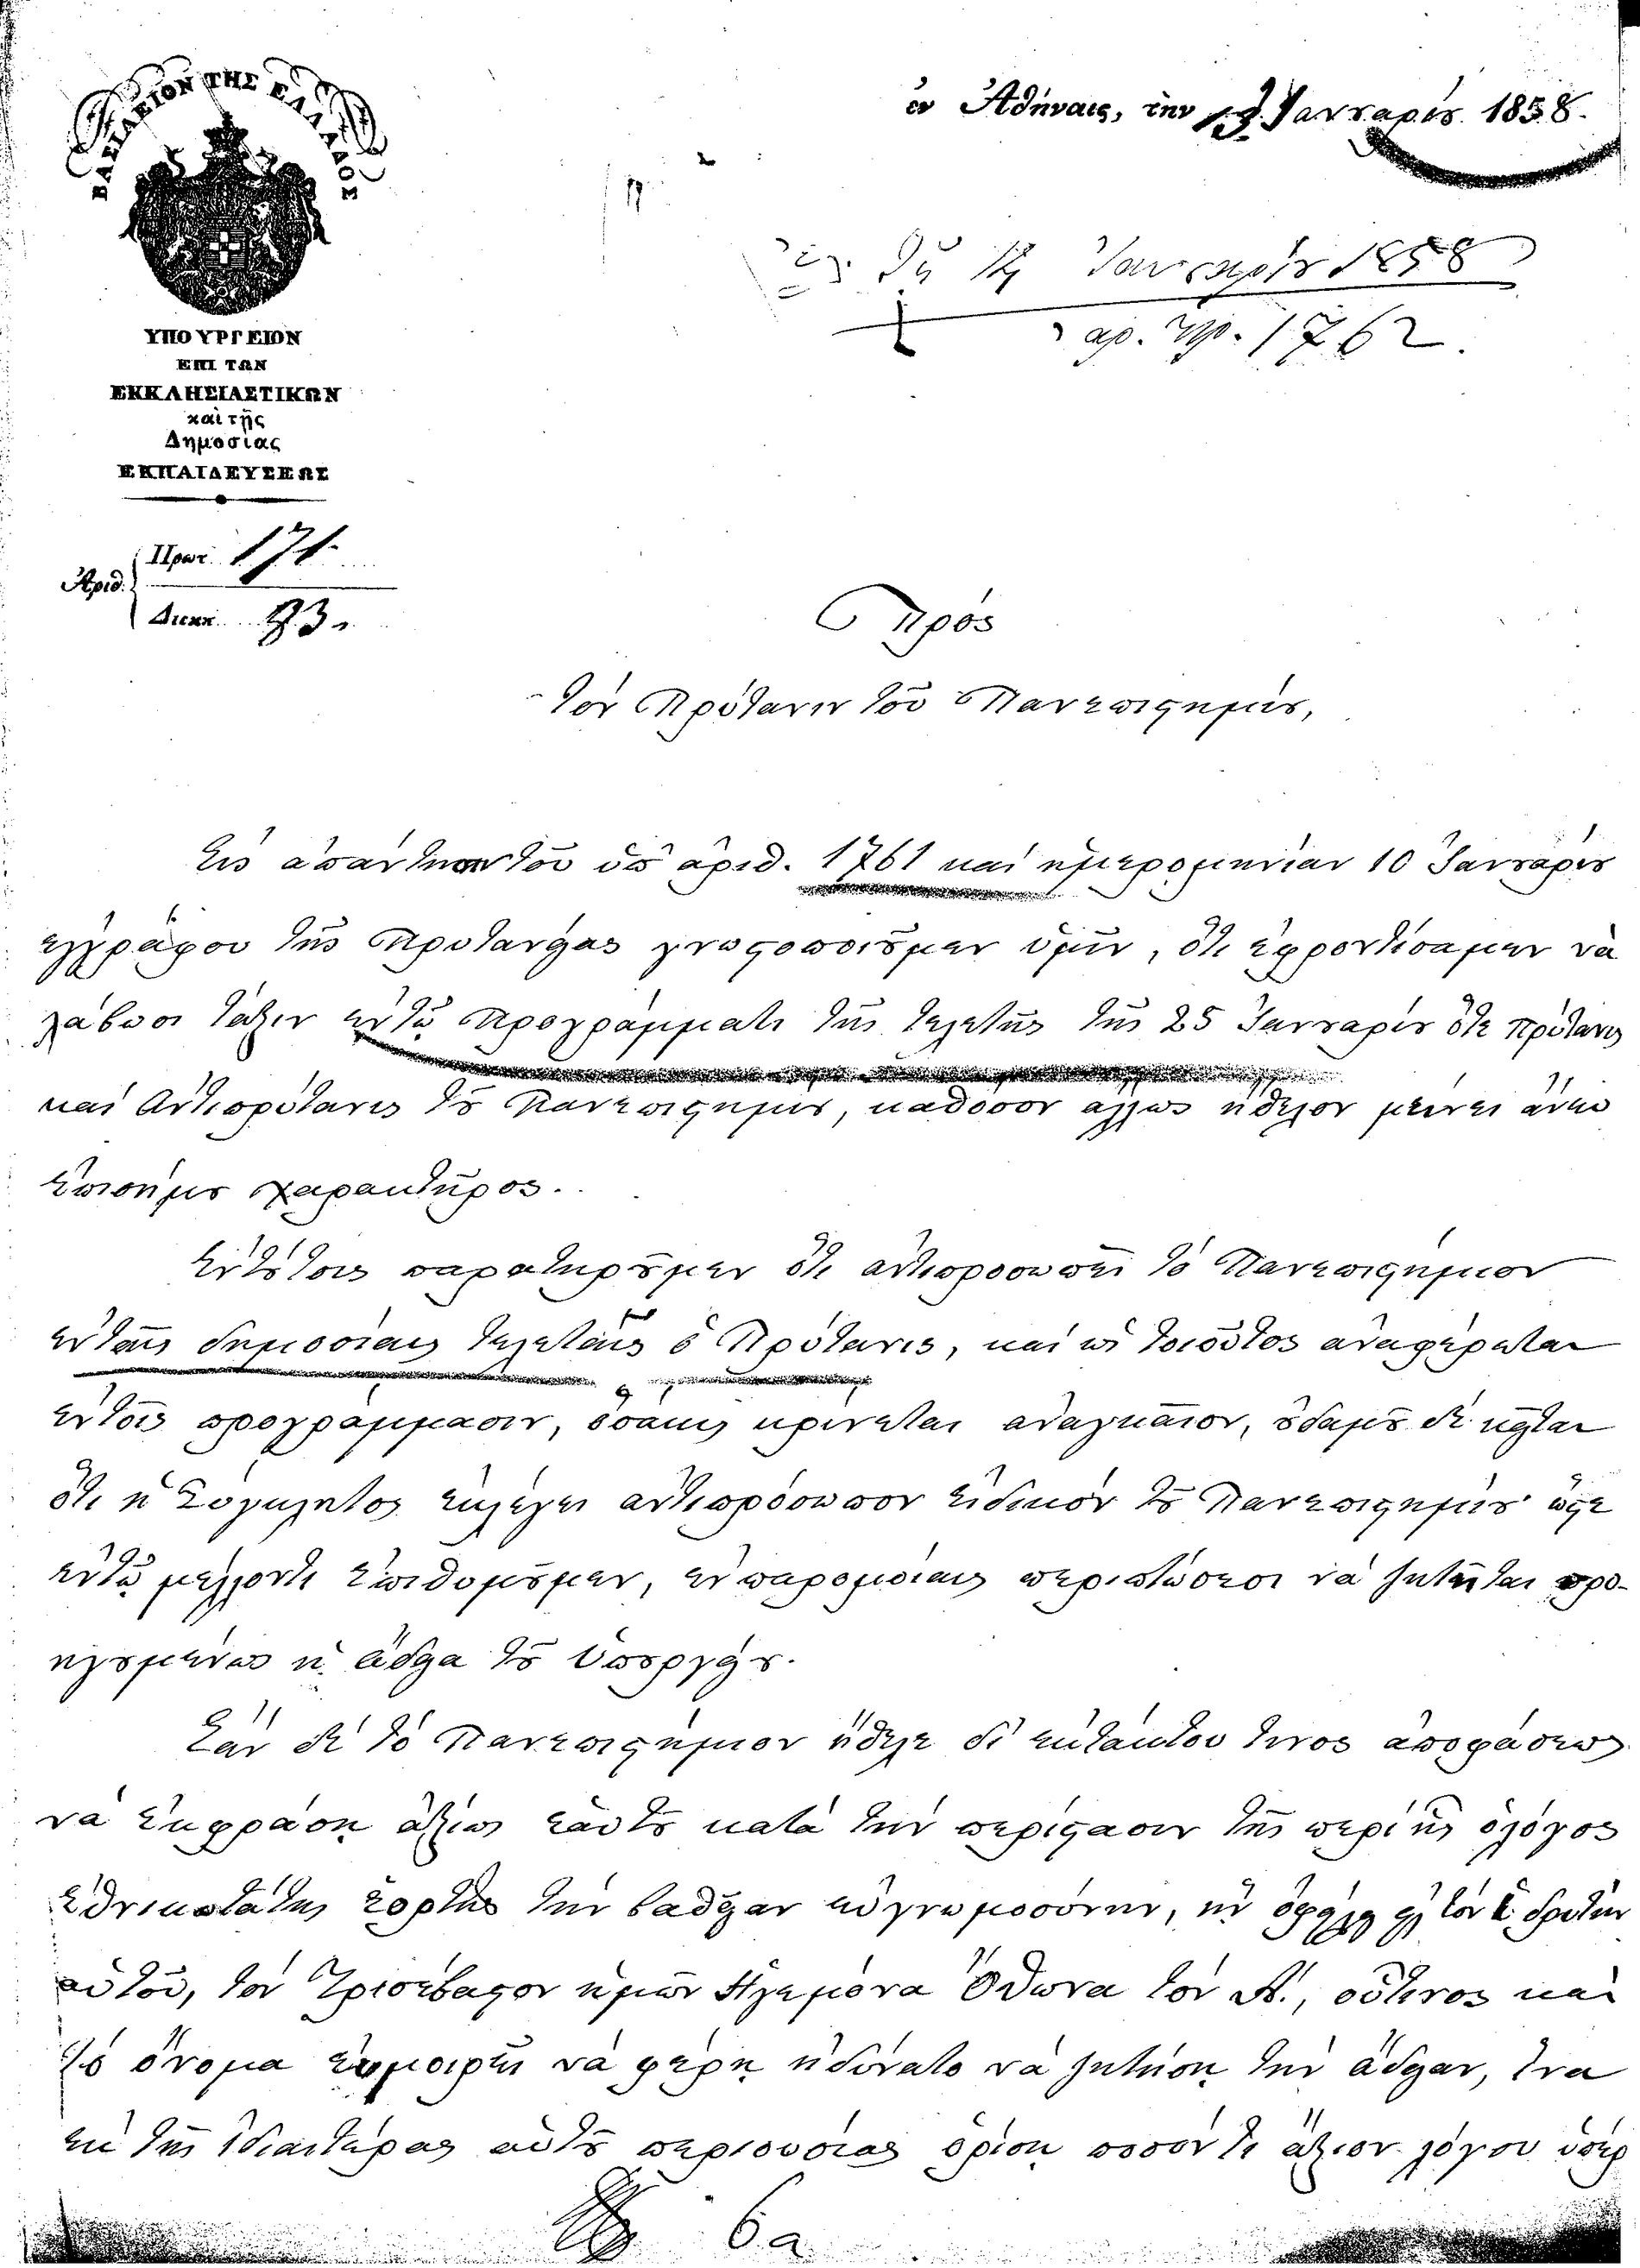 ΒΑΣΙΛΕΙΟΝ ΤΗΣ ΕΛΛΑΔΟΣ
ΥΠΟΥΡΓΕΙΟΝ
ΕΠΙ ΤΩΝ
ΕΚΚΛΗΣΙΑΣΤΙΚΩΝ
καὶ τῆς
Δημοσίας
ΕΚΠΑΙΔΕΥΣΕΩΣ
Ἀριθ. Πρωτ. 171.
Διεκπ. 93.
ἐν Ἀθήναις, τὴν 13 Ἰανουαρίου 1858.
τῇ 14 Ἰανουαρίου 1858
ἀρ. πρ. 1762.
Πρὸς
τὸν Πρύτανιν τοῦ Πανεπιστημίου,
Εἰς ἀπάντησιν τοῦ ὑπ' ἀριθ. 1761 καὶ ἡμερομηνίαν 10 Ἰανουαρίου
ἐγγράφου τῆς Πρυτανείας γνωστοποιοῦμεν ὑμῖν, ὅτι ἐφροντίσαμεν νὰ
λάβωσι τάξιν ἐν τῷ προγράμματι τῆς τελετῆς τῆς 25 Ἰανουαρίου ὅτε πρύτανις
καὶ Ἀντιπρύτανις τοῦ Πανεπιστημίου, καθόσον ἄλλως ἤθελον μείνει ἄνευ
ἐπισήμου χαρακτῆρος.
Ἐν τούτοις παρατηροῦμεν ὅτι ἀντιπροσωπεῖ τὸ Πανεπιστήμιον
ἐν ταῖς δημοσίαις τελεταῖς ὁ Πρύτανις, καὶ ὡς τοιοῦτος ἀναφέρεται
ἐν τοῖς προγράμμασιν, ὁσάκις κρίνεται ἀναγκαῖον, οὐδαμοῦ δὲ κεῖται
ὅτι ἡ Σύγκλητος ἐκλέγει ἀντιπρόσωπον εἰδικὸν τοῦ Πανεπιστημίου· ὥστε
ἐν τῷ μέλλοντι ἐπιθυμοῦμεν, ἐν παρομοίαις περιπτώσεσι νὰ ζητῆται προ-
ηγουμένως ἡ ἄδεια τοῦ Ὑπουργείου.
Ἐὰν δὲ τὸ Πανεπιστήμιον ἤθελε δι' ἐκτάκτου τινος ἀποφάσεως
νὰ ἐκφράσῃ ἀξίως ἑαυτοῦ κατὰ τὴν περίστασιν τῆς περὶ ἧς ὁ λόγος
ἐθνικωτάτης ἑορτῆς τὴν βαθεῖαν εὐγνωμοσύνην, ἣν ὀφείλει εἰς τὸν ἱδρυτὴν
αὐτοῦ, τὸν τρισέβαστον ἡμῶν Ἡγεμόνα Ὄθωνα τὸν Α΄., οὗτινος καὶ
τὸ ὄνομα εὐμοιρεῖ νὰ φέρῃ ἠδύνατο νὰ ζητήσῃ τὴν ἄδειαν, ἵνα
ἐκ τῆς ἰδιαιτέρας αὐτοῦ περιουσίας ὁρίσῃ ποσόν τι ἄξιον λόγου ὑπὲρ
6α